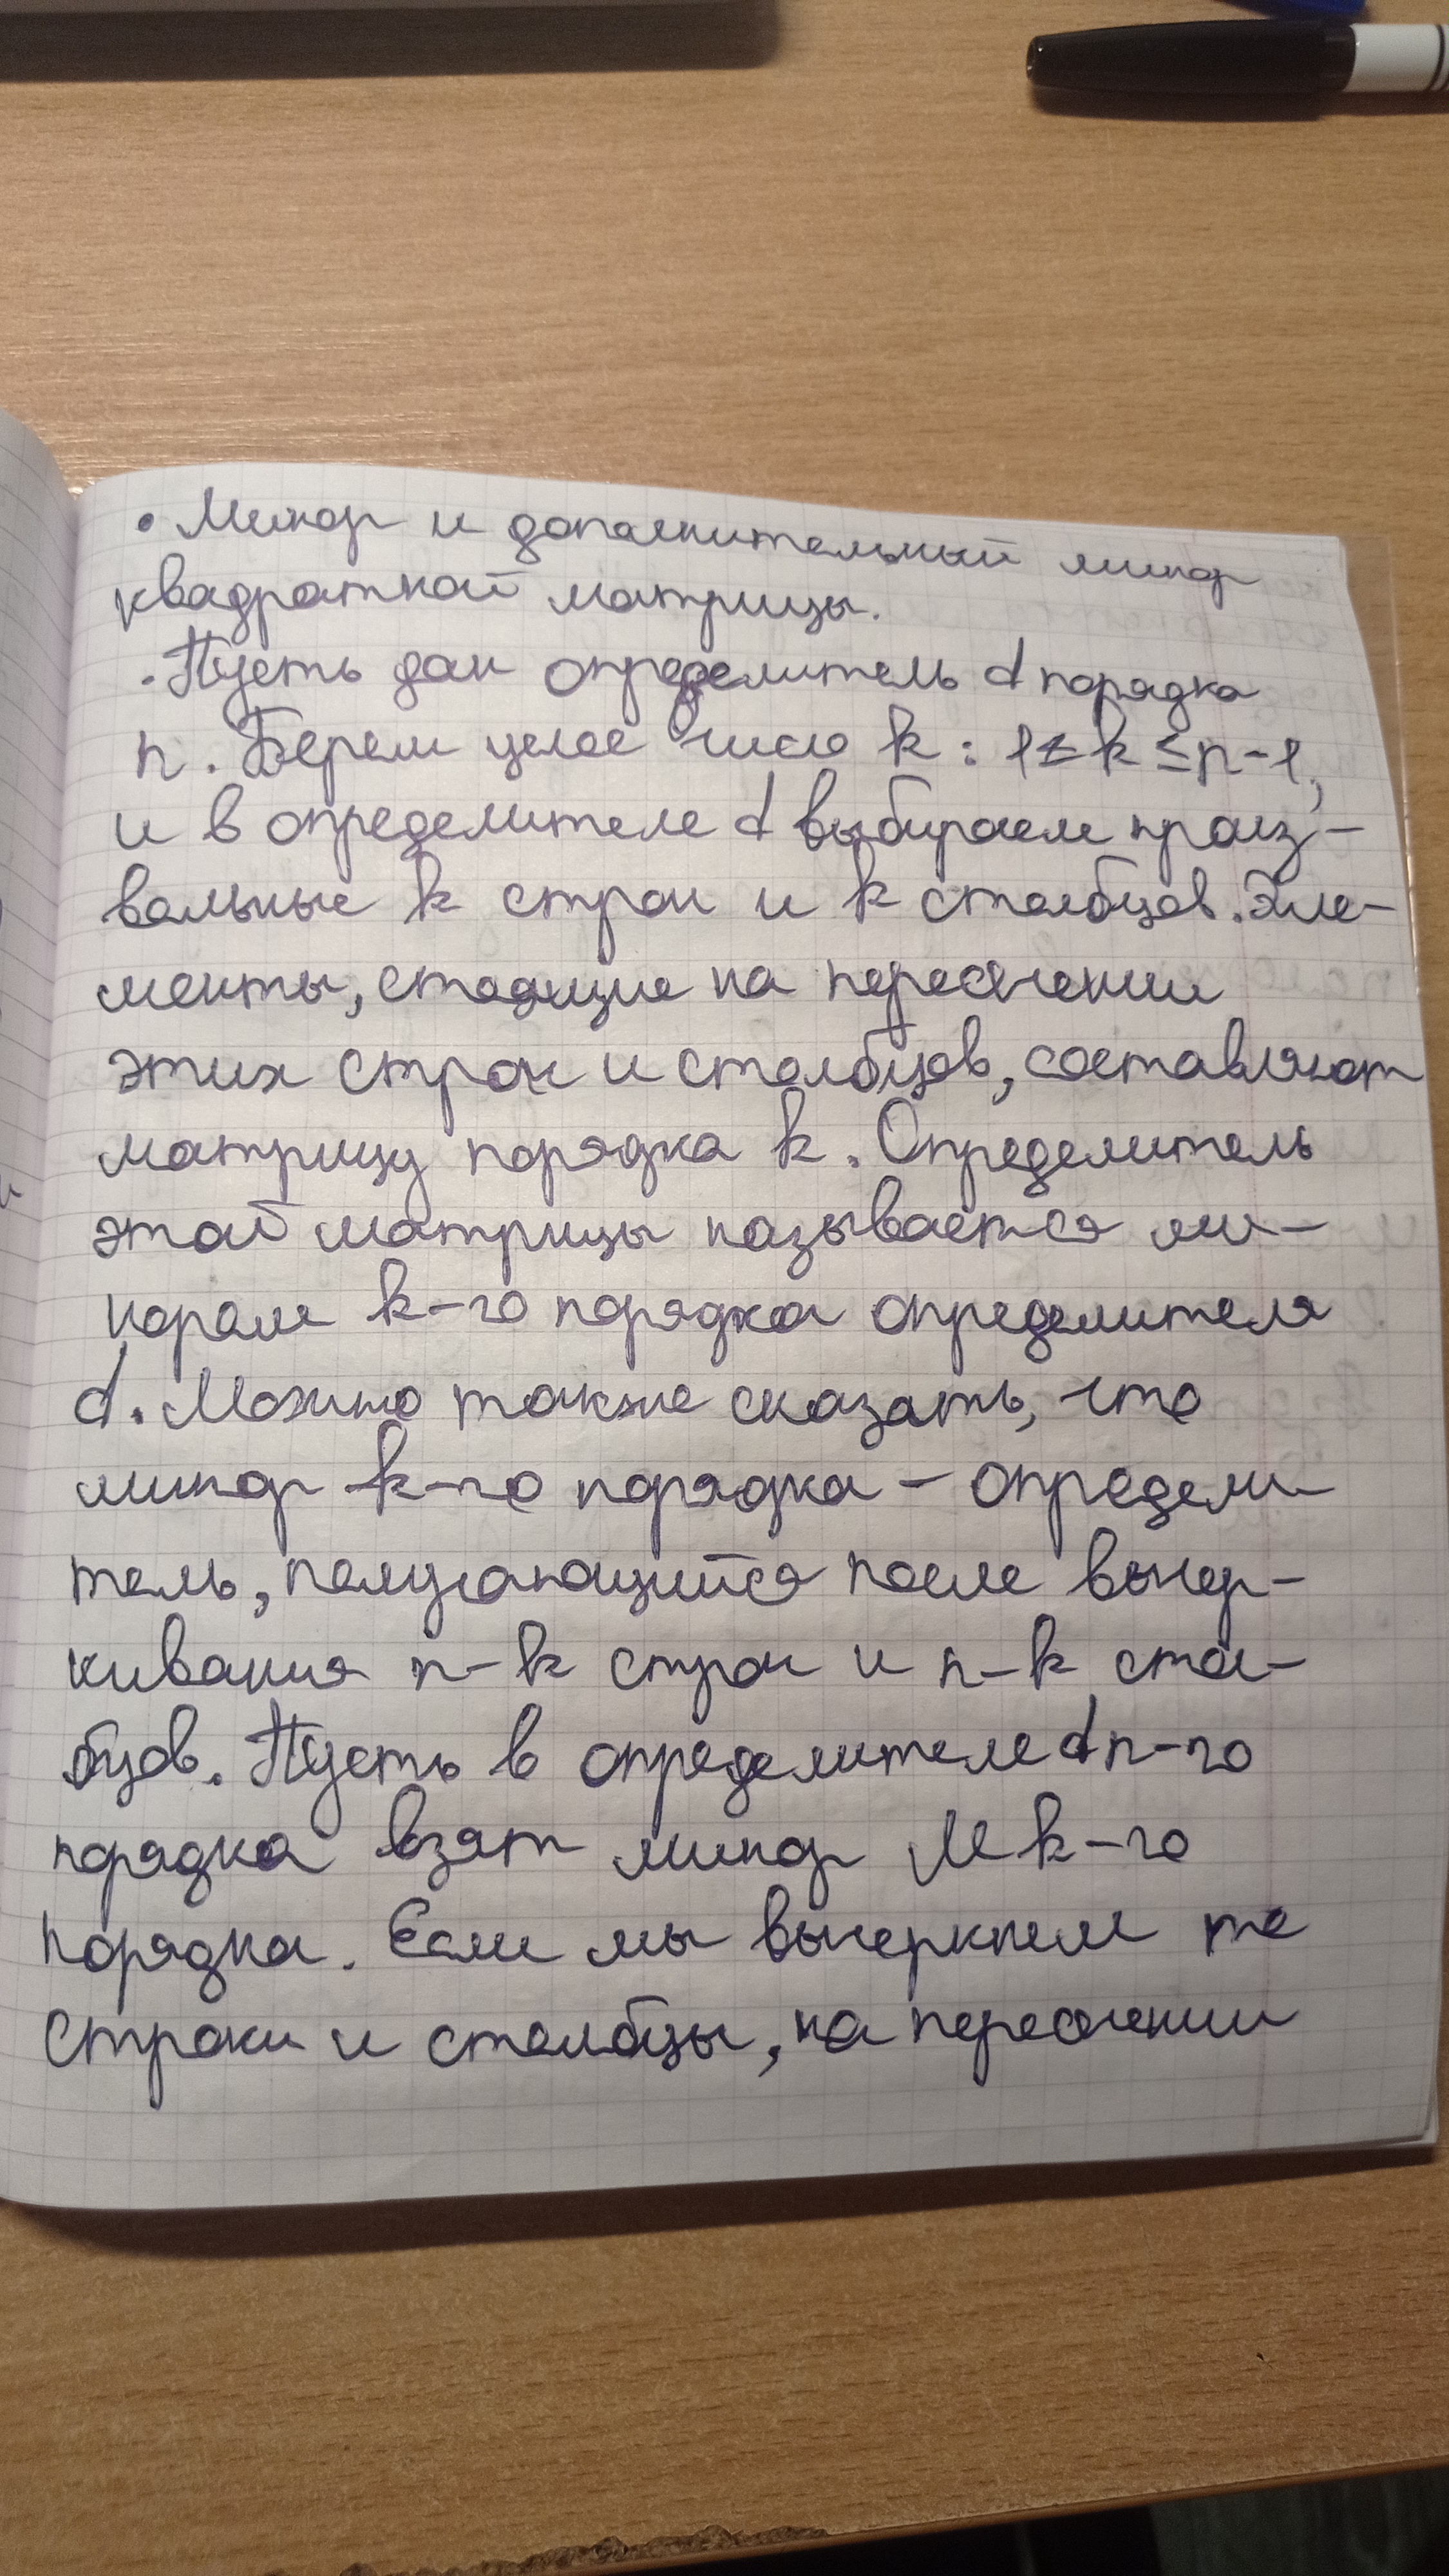 • Минор и дополнительный минор
квадратной матрицы.
· Пусть дан определитель d порядка
n. Берем целое число k: 1 ≤ k ≤ n-1,
и в определителе d выбираем произ-
вольные k строк и k столбцов. Эле-
менты, стоящие на пересечении
этих строк и столбцов, составляют
матрицу порядка k. Определитель
этой матрицы называется ми-
нором k-го порядка определителя
d. Можно также сказать, что
минор k-го порядка - определи
тель, получающийся после вычер-
кивания n-k строк и n-k стол-
бцов. Пусть в определителе d n-го
порядка взят минор M k-го
порядка. Если мы вычеркнем те
строки и столбцы, на пересечении